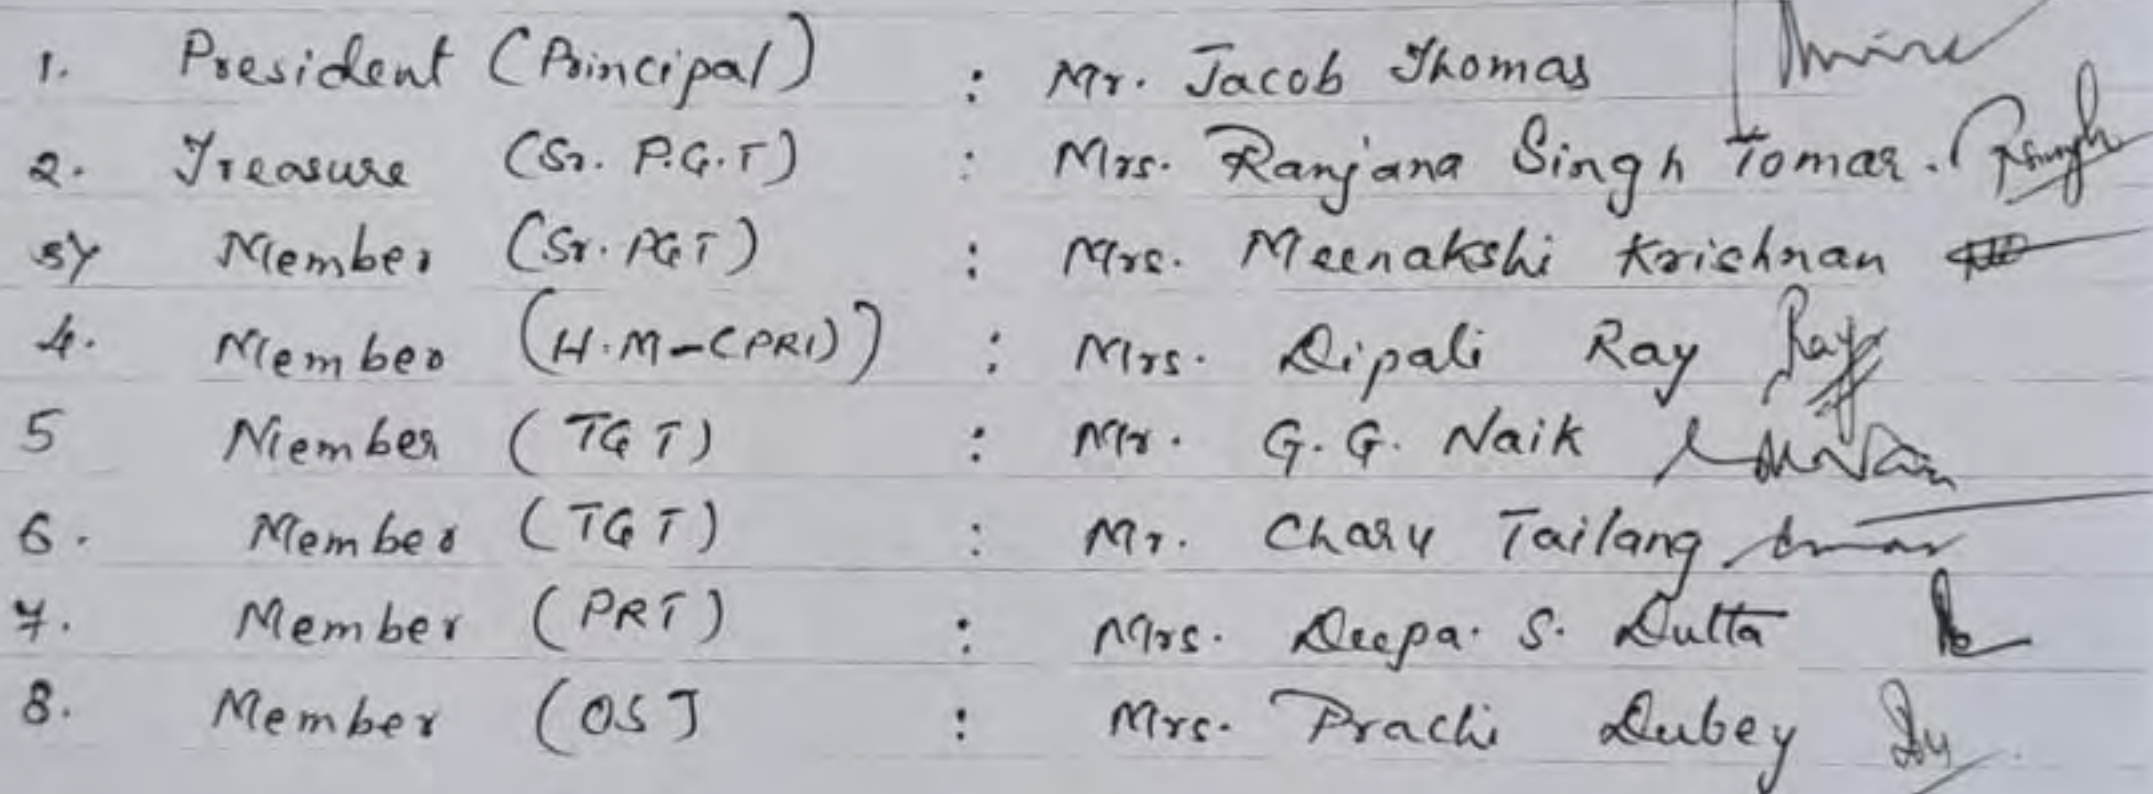 1. President (Principal) : Mr. Jacob Thomas
2. Treasure (Sr. P.G.T) : Mrs. Ranjana Singh Tomar.
3) Member (Sr. PGT) : Mrs. Meenakshi Krishnan
4. Member (H.M-(PRI)) : Mrs. Dipali Ray
5 Member (TGT) : Mr. G.G. Naik
6. Member (TGT) : Mr. Charu Tailang
7. Member (PRT) : Mrs. Deepa. S. Dutta
8. Member (OS) : Mrs. Prachi Dubey